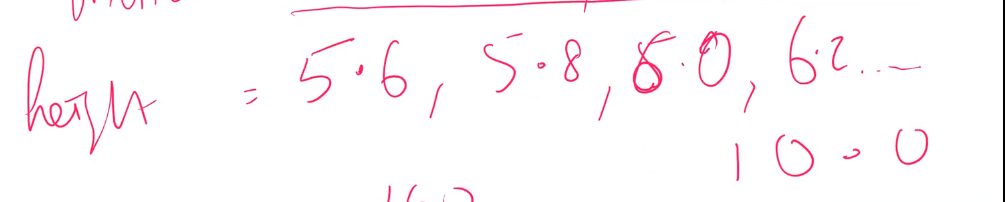 height = 5.6, 5.8, 6.0, 6.2...
10.0